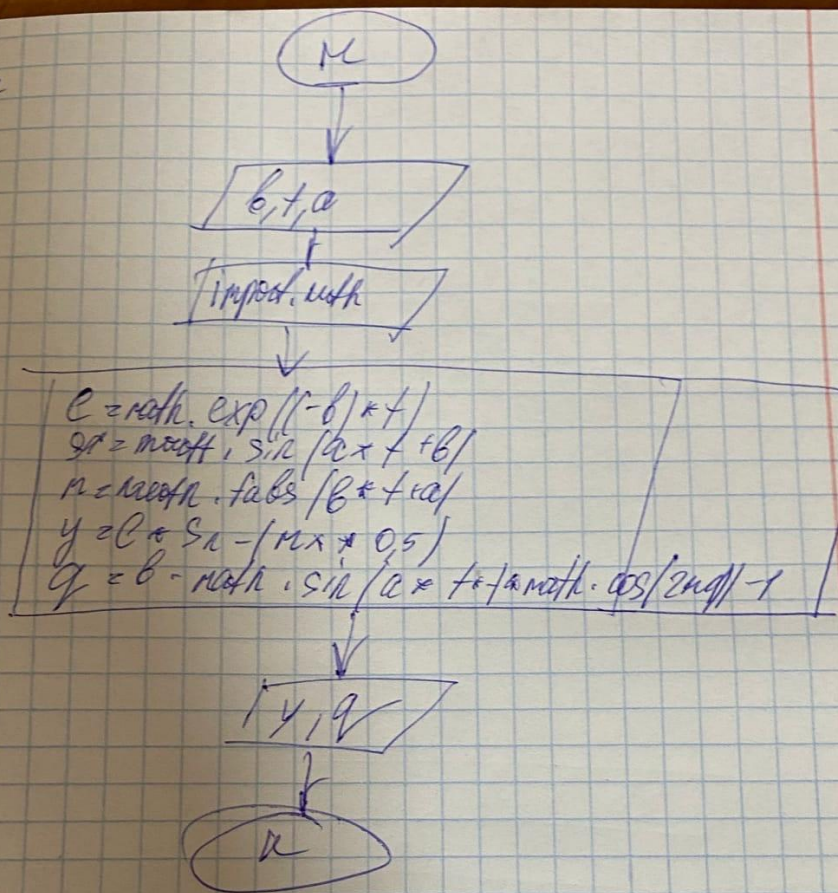 н
b, t, a
import.math
e = math.exp((-b)*t)
sn = math.sin(a*t+b)
n = math.fabs(b*t+a)
y = e * sn - (n ** 0,5)
q = b - math.sin(a * t*t * math.cos(2 -1
y, q
к